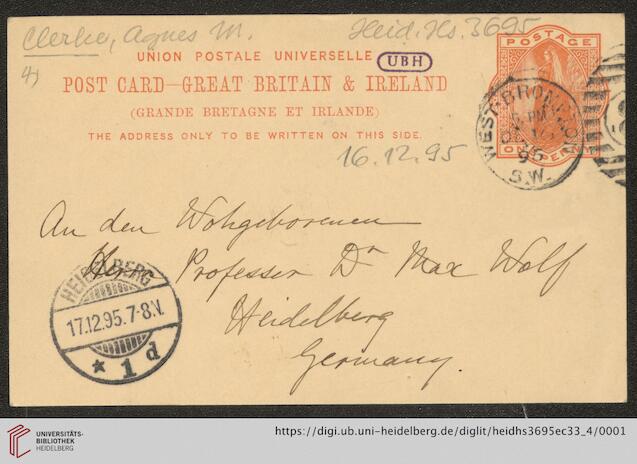 Clerke, Agnes M.
Heid. Hs. 3695
4)
UNION POSTALE UNIVERSELLE
UBH
POST CARD—GREAT BRITAIN & IRELAND
(GRANDE BRETAGNE ET IRLANDE)
THE ADDRESS ONLY TO BE WRITTEN ON THIS SIDE.
POSTAGE
ONE PENNY
WEST BROMPTON
S.W.
16.12.95
An den Wohgeborenen
Herrn Professor Dr Max Wolf
Heidelberg
Germany.
HEIDELBERG
17.12.95.7-8.V.
* 1 d
UNIVERSITÄTS-
BIBLIOTHEK
HEIDELBERG
https://digi.ub.uni-heidelberg.de/diglit/heidhs3695ec33_4/0001